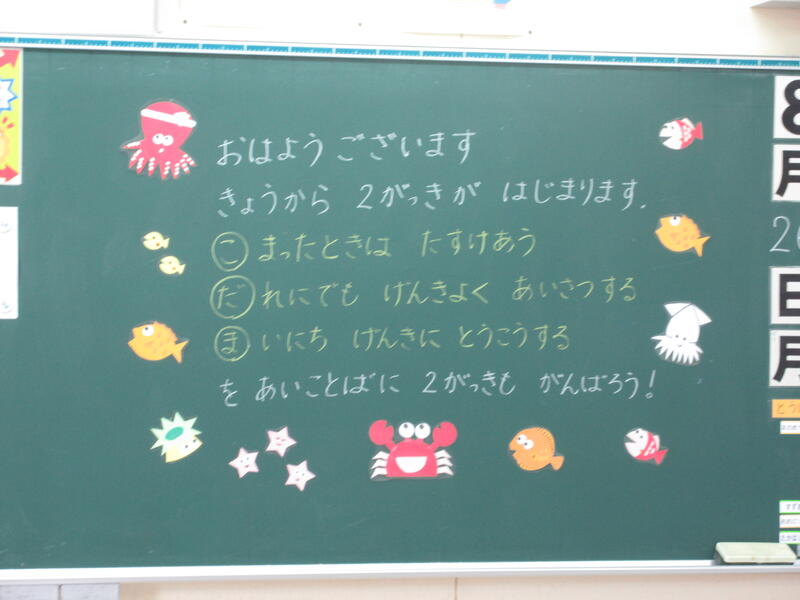 おはようございます
きょうから 2がっきが はじまります.
こまったときは たすけあう
だれにでも げんきよく あいさつする
まいにち げんきに とうこうする
を あいことばに 2がっきも がんばろう!
8
月
2
日
月